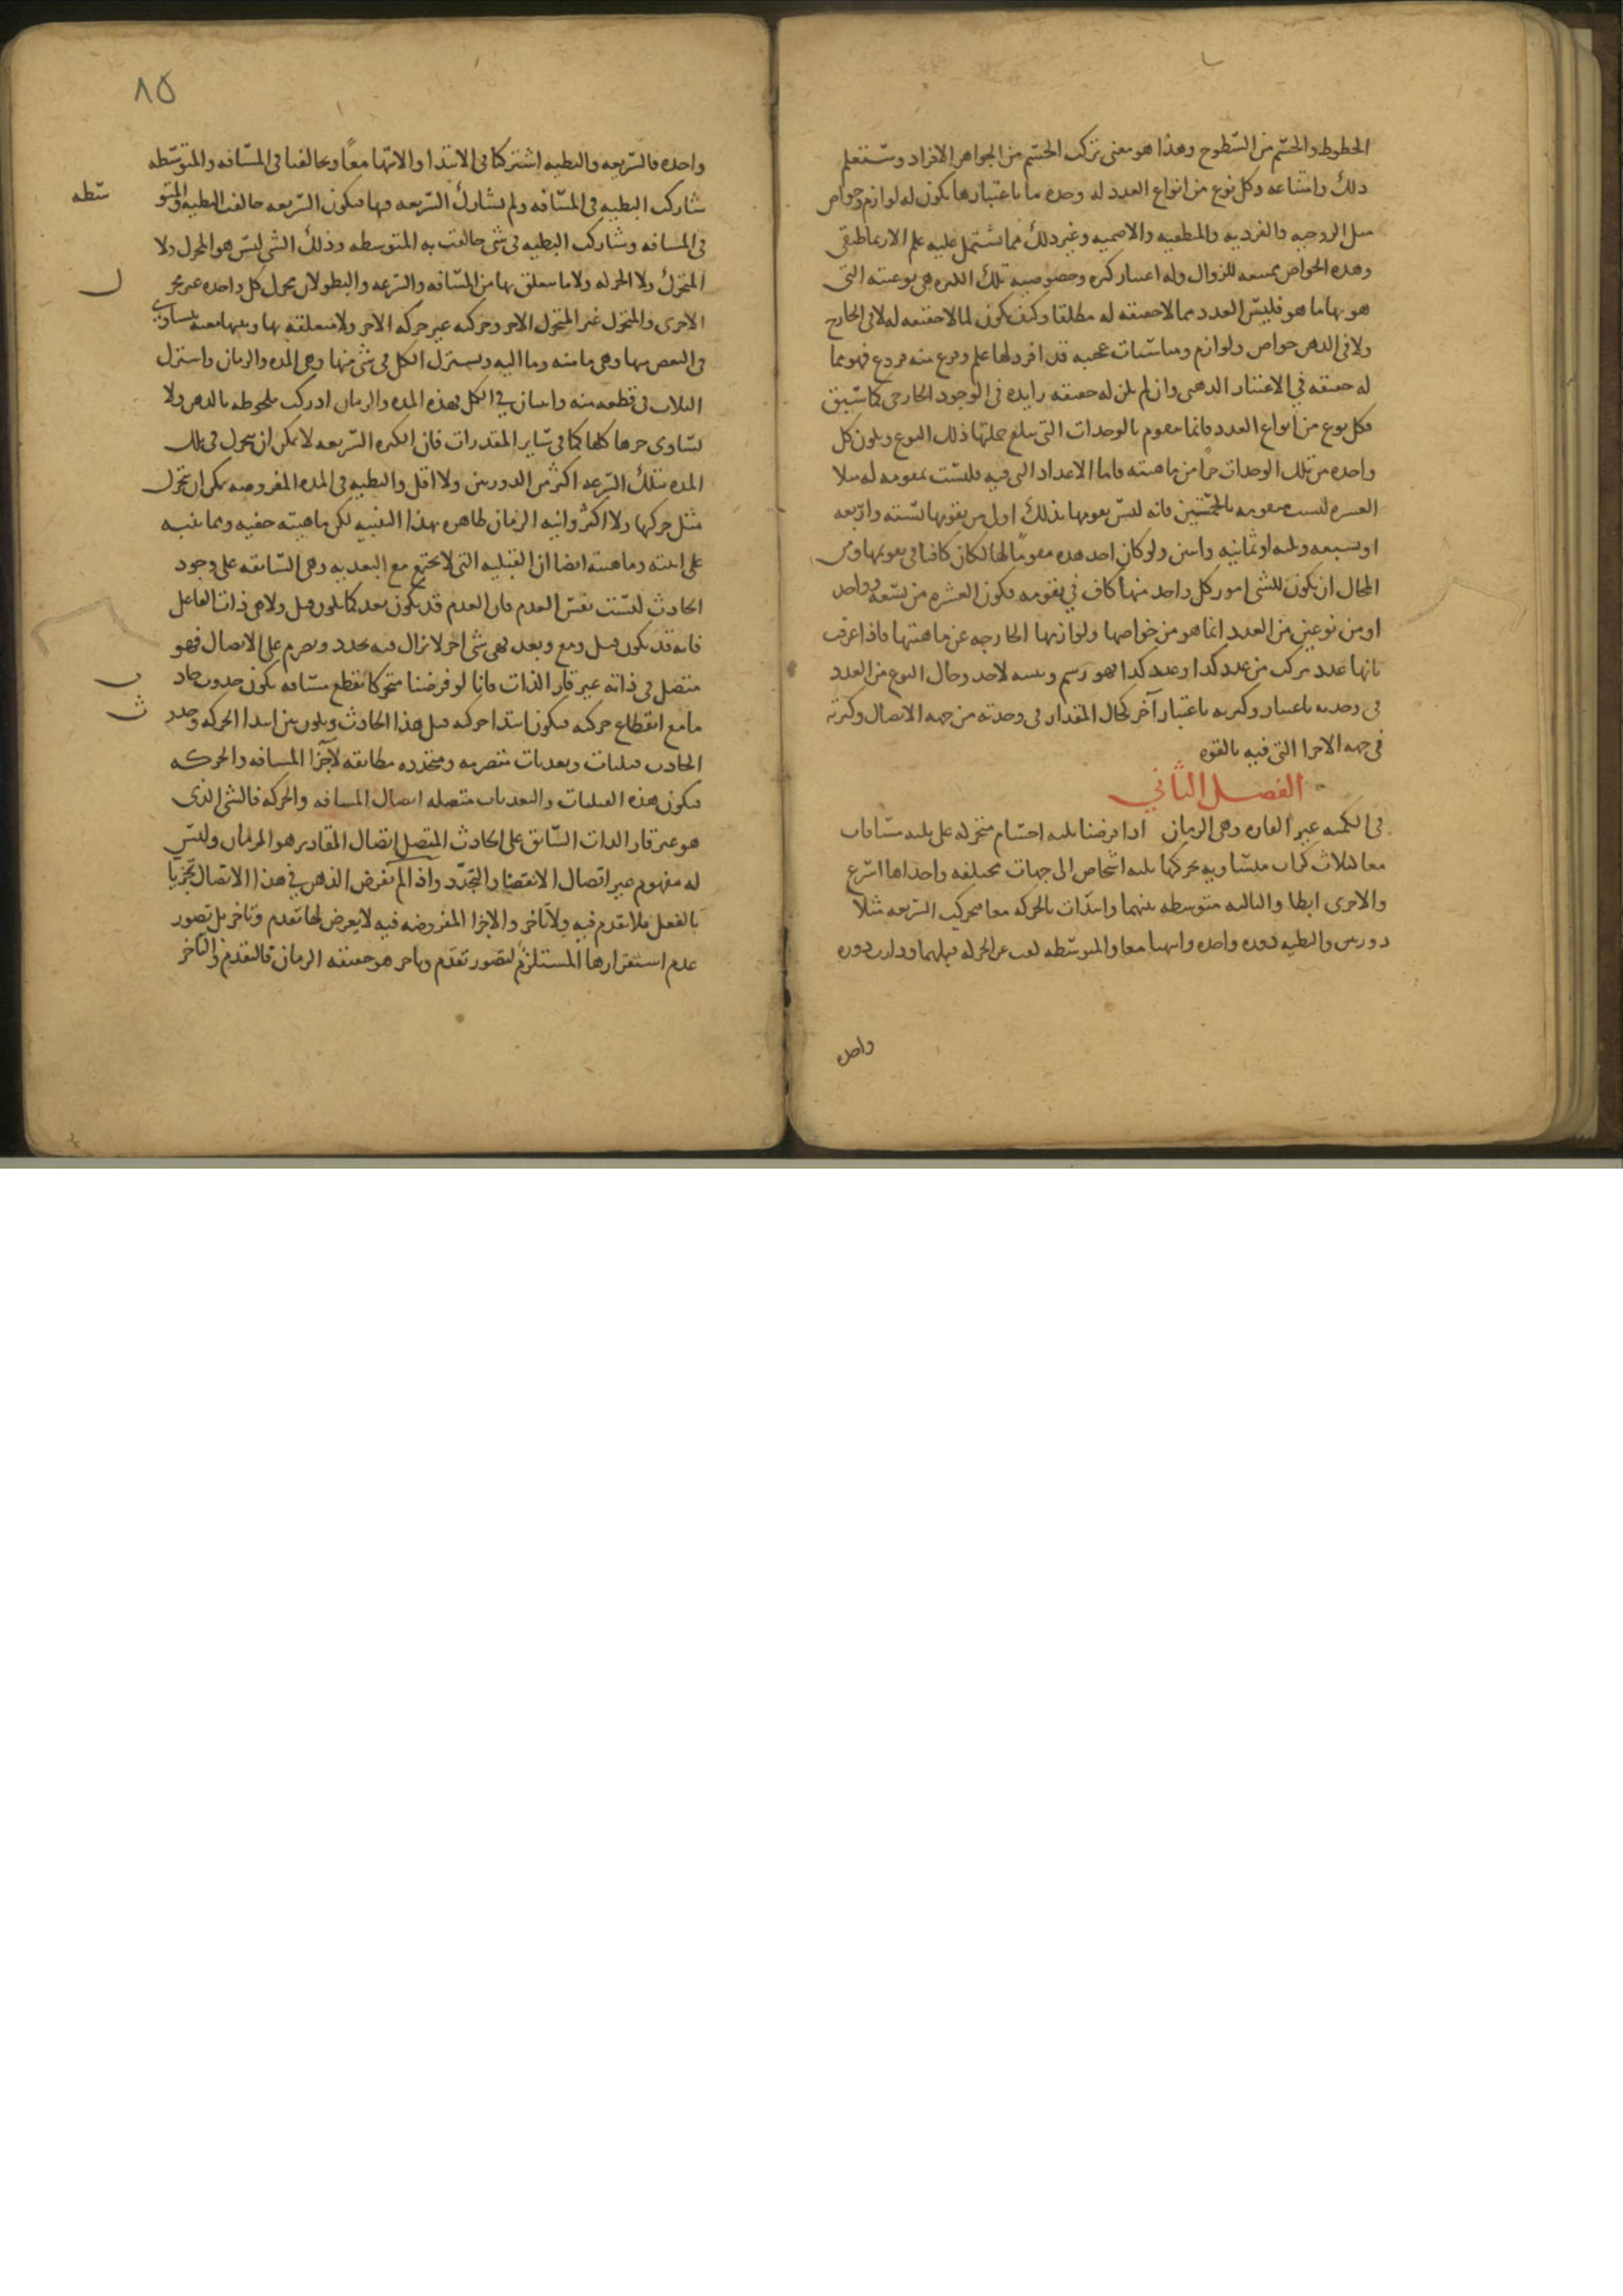 الخطوط والجسم من السطوح وهذا هو معنى تركب الجسم من الجواهر الافراد وستعلم
ذلك وامتناعه وكل نوع من انواع العدد له وحدة ما باعتبارها يكون له لوازم وخواص
مثل الزوجيه والفرديه والمنطقيه والاصميه وغير ذلك مما يشتمل عليه علم الارتماطيقى
وهذه الخواص ممتنعه للزوال وله اعتبار كثره وخصوصيه تلك الكثره هى نوعيته التى
هو بها ما هو فليس العدد مما لا حقيقه له مطلقا وكيف يكون لما لا حقيقه له لا فى الخارج
ولا فى الذهن خواص ولوازم ومناسبات عجيبه قد افرد لها علم وفرع منه فروع فهو مما
له حقيقه في الاعتبار الذهنى وان لم يكن له حقيقه زايده فى الوجود الخارجى كما سبق
فكل نوع من انواع العدد فانما يتقوم بالوحدات التى يبلغ جملتها ذلك النوع ويكون كل
واحده من تلك الوحدات جزأ من ماهيته فاما الاعداد التى فيه فليست بمقومه له مثلا
العشره ليست متقومه بالخمستين فانه ليس تقومها بذلك اولى من تقومها بستة واربعه
او بسبعه وثلثه او ثمانيه واثنين ولو كان احد هذه مقومًا لها لكان كافيا فى تقويمها ومن
المحال ان يكون للشى امور كل واحد منها كاف في تقومه فكون العشره من تسعه وواحد
او من نوعين من العدد انما هو من خواصها ولوازمها الخارجه عن ماهيتها فاذا عرفت
بانها عدد مركب من عدد كذا وعدد كذا فهو رسم وليس لاحد وحال النوع من العدد
فى وحدته باعتبار وكثرته باعتبار آخر كحال المقدار فى وحدته من جهه الاتصال وكثرته
فى جهه الاجزا التى فيه بالقوه
الفصل الثاني
فى الكميه غير القاره وهى الزمان اذا فرضنا ثلثه اجسام متحركه على ثلثه مسافات
معا لثلاث كرات متساويه تحركها ثلثه اشخاص الى جهات مختلفه واحداها اسرع
والاخرى ابطا والثالثه متوسطه بينهما وابتدات بالحركه معا فتحركت السريعه مثلا
دورتين والبطيه دوره واحده وانتهتا معا والمتوسطه كفت عن الحركه قبلهما ودارت دوره
واحده
٨٥
واحده فالسريعه والبطيه اشتركتا فى الابتدا والانتها معًا وتخالفتا فى المسافه والمتوسطه
شاركت البطيه فى المسافه ولم تشارك السريعه فيها فتكون السريعه خالفت البطيه والمتو
سطه
فى المسافه وشاركت البطيه فى شى خالفت به المتوسطه وذلك الشى ليس هو المحرك ولا
المتحرك ولا الحركه ولا ما يتعلق بها من المسافه والسرعه والبطو لان محرك كل واحده غير محر
ك
الاخرى والمتحرك غير المتحرك الاخر وحركته غير حركه الاخر ولا متعلقه بها
فى البعض منها وهى ما منه وما اليه ويشترك الكل فى شى منها وهى المده والزمان واشترك
الثلاث فى قطعه منه واثنان في الكل بهذه المده والزمان ادركت ملحوظه بالذهن ولا
تساوى جزها كلها كما فى ساير المقدرات فان الكره السريعه لا يمكن ان تتحرك فى تلك
المده بتلك السرعه اكثر من الدورتين ولا اقل والبطيه فى المده المفروضه يمكن ان تتحرك
مثل حركتها ولا اكثر وانيه الزمان ظاهره بهذا التنبيه لكن ماهيته خفيه ومما ينبه
على انيته وماهيته ايضا ان القبليه التى لا تجتمع مع البعديه وهى السابقه على وجود
الحادث ليست نفس العدم فان العدم قد يكون بعد كما يكون قبل ولا هى ذات الفاعل
فانه قد يكون قبل ومع وبعد فهى شى اخر لا يزال فيه تجدد وتصرم على الاتصال فهو
متصل فى ذاته غير قار الذات فانا لو فرضنا متحركا يقطع مسافه يكون حدوث حاد
ث
ما مع انقطاع حركته فيكون ابتدا حركته قبل هذا الحادث ويكون بين ابتدا الحركه وحدو
ث
الحادث قبليات وبعديات متصرمه ومتجدده مطابقه لاجزا المسافه والحركه
فتكون هذه القبليات والبعديات متصله اتصال المسافه والحركه فالشى الذى
هو غير قار الذات السابق على الحادث المتصل اتصال المقادير هو الزمان وليس
له مفهوم غير اتصال الانقضا والتجدد واذا لم يفرض الذهن في هذا الاتصال تجزيا
بالفعل فلا تقدم فيه ولا تاخر والاجزا المفروضه فيه لا يعرض لها تقدم وتاخر بل تصور
عدم استقرارها المستلزم لتصور تقدم وتاخر هو حقيقه الزمان فالتقدم والتاخر